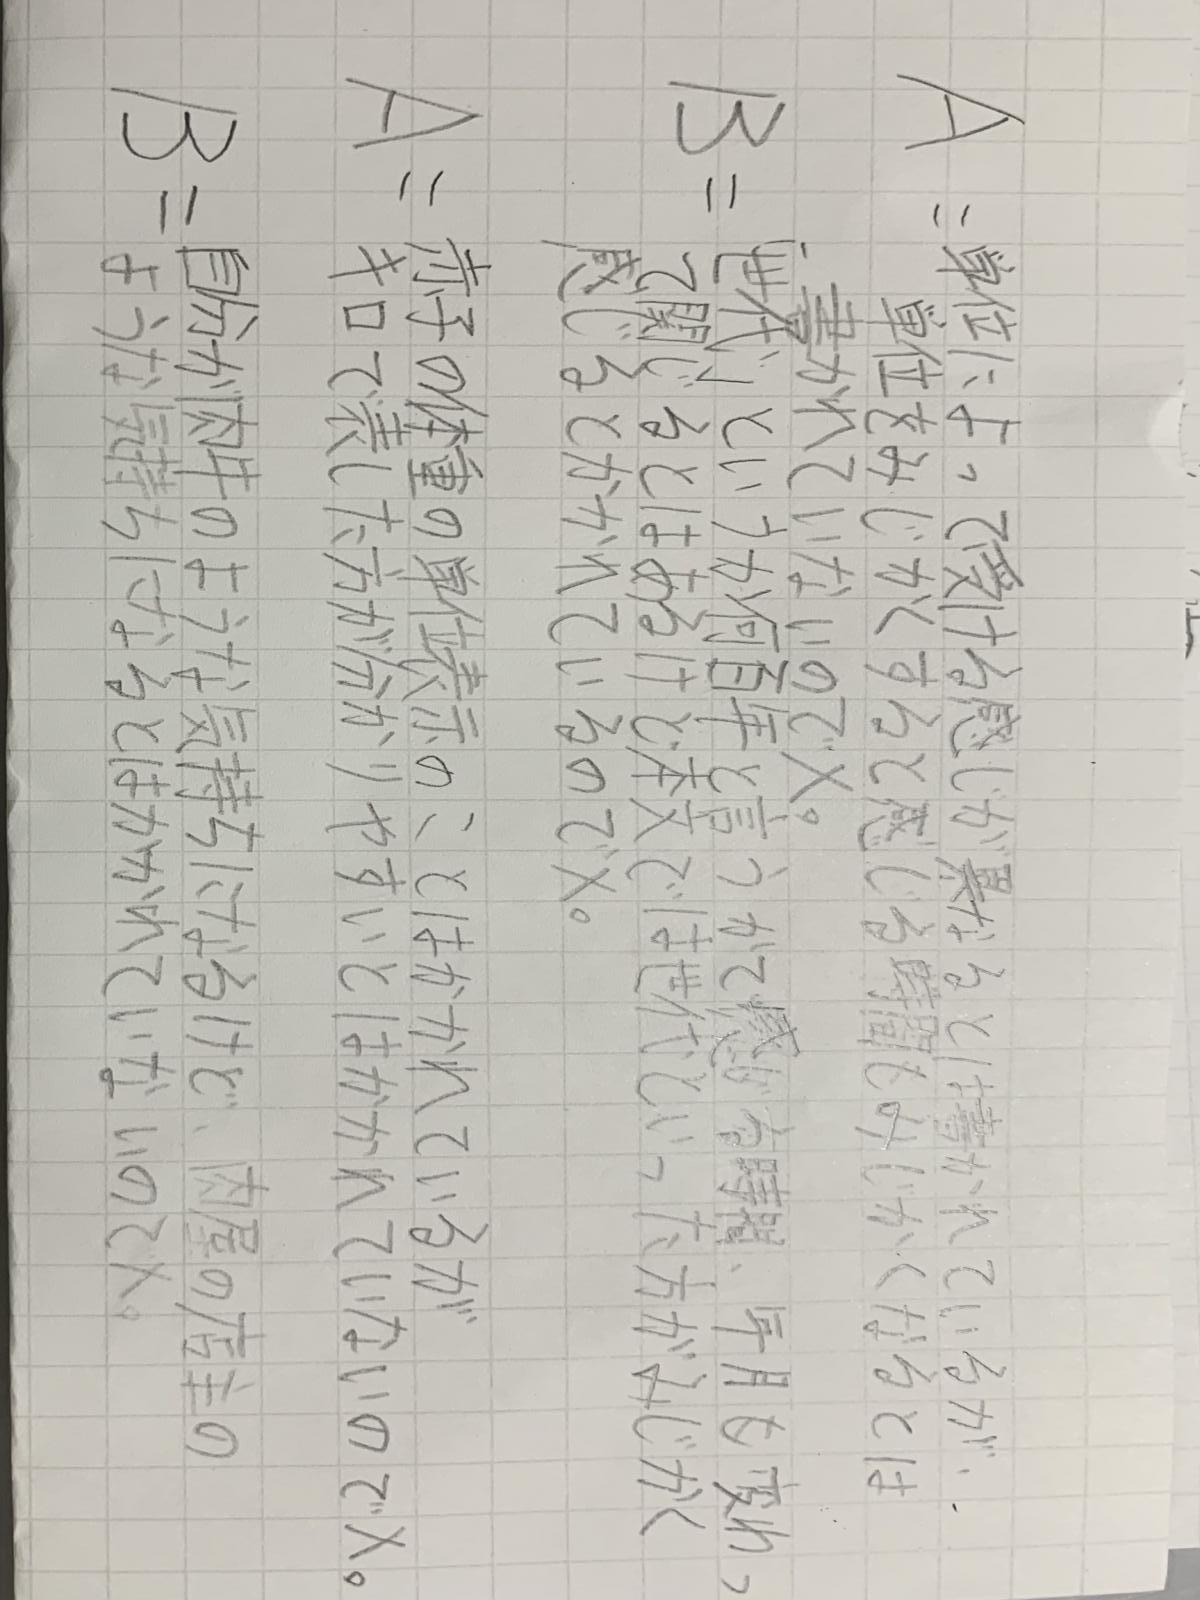 A=単位によって受ける感じが異なるとは書かれているが、
単位をみじかくすると感じる時間もみじかくなるとは
書かれていないので×。
B=世代というか何百年と言うかで感じる時間、年月も変わっ
て関じるとはあるけど本文では世代といった方がみじかく
感じるとかかれているので×。
A=赤子の体重の単位表示のことはかかれているが
キロで表した方が分かりやすいとはかかれていないので×。
B=自分が相手のような気持ちになるけど、の
ような気持ちになるとはかかれていないので×。